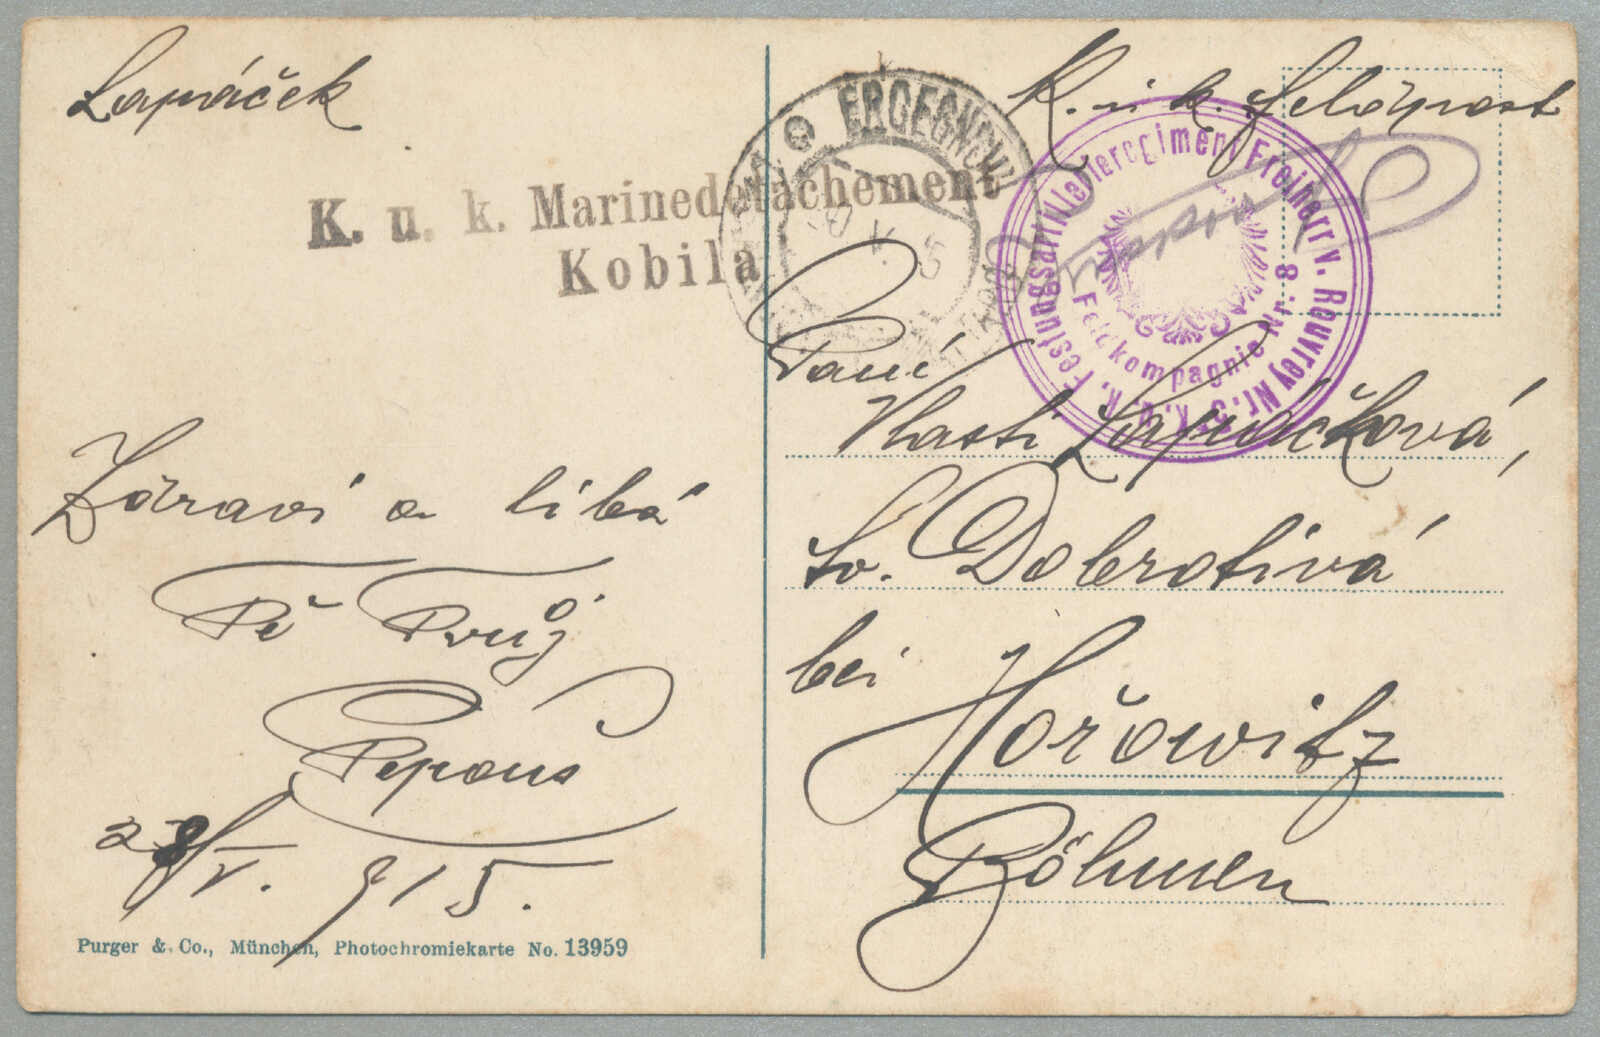 Lapáček
K. u. k. Marinedetachement
Kobila
Zdraví a líbá
Tě Tvůj
28/V. 915.
Purger & Co., München, Photochromiekarte No. 13959
ERCEGNOVI
K. u. k. Feldpost
K. u. k. Festungsartillerieregiment Freiherr v. Rouvroy Nr. 5
Feldkompagnie Nr. 8
Paní
Vlasti Lapáčková,
Sv. Dobrotivá
bei
Hořowitz
Böhmen